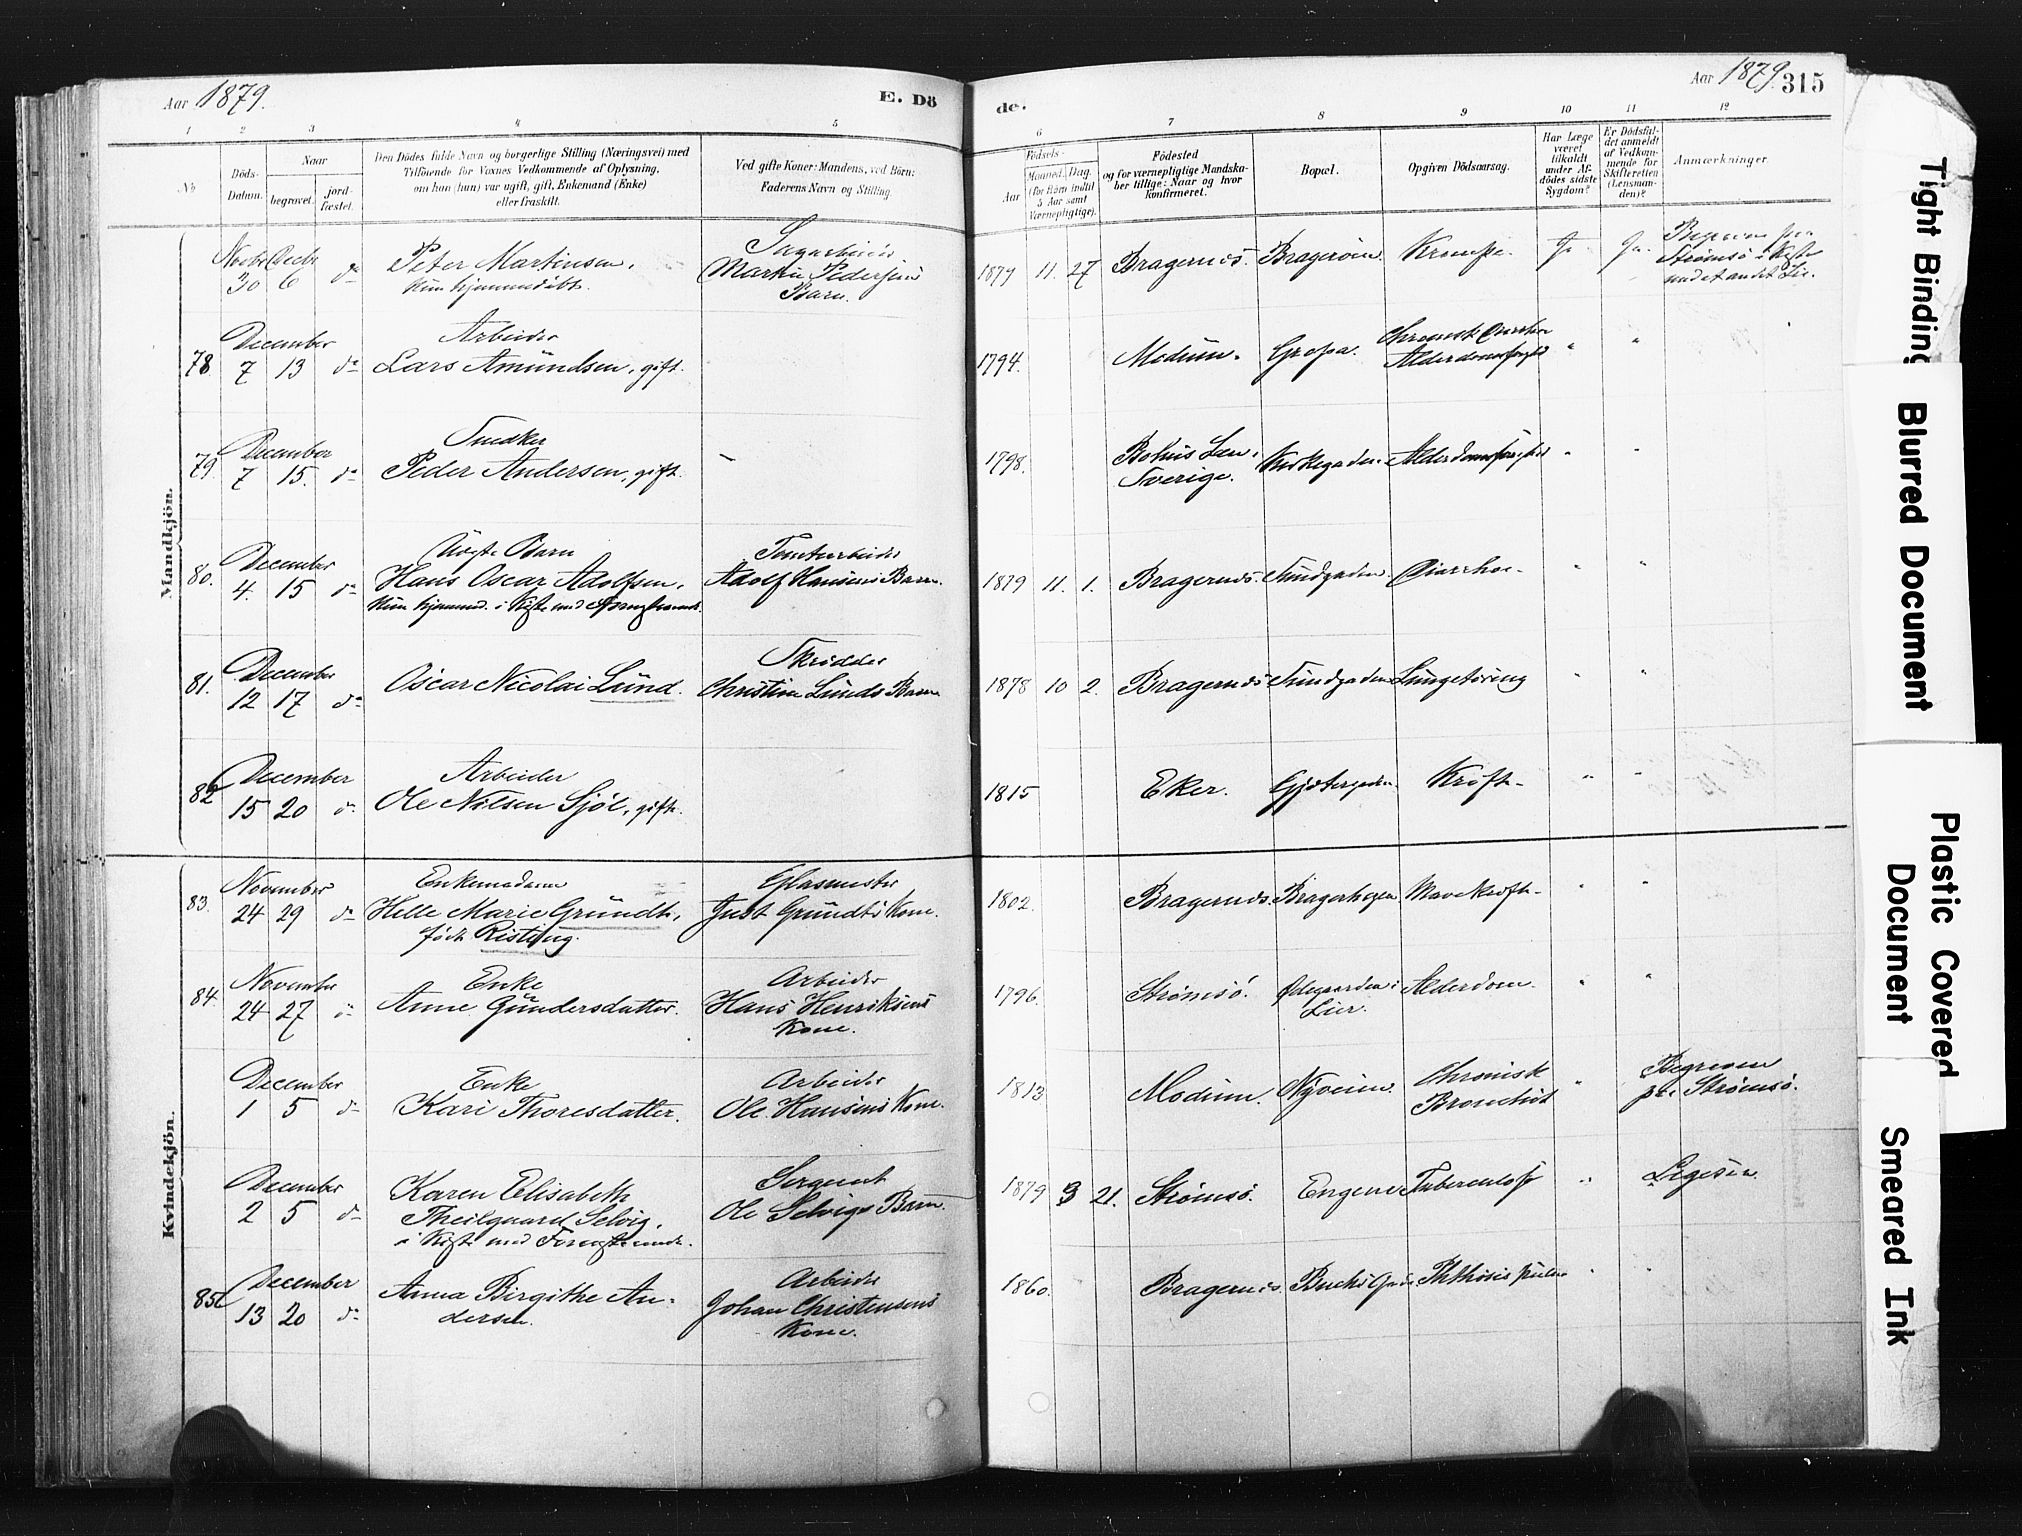 Aar 1879.
E. Dö
de.
Aar 1879. 315
1 2 3 4 5 6 7 8 9 10 11 12
No
Döds-
Datum.
Naar
begravet.
jord-
fæstet.
Den Dödes fulde Navn og borgerlige Stilling (Næringsvei) med
Tilföiende for Voxnes Vedkommende af Oplysning,
om han (hun) var ugift, gift, Enkemand (Enke)
eller fraskilt.
Ved gifte Koner: Mandens, ved Börn:
Faderens Navn og Stilling.
Födsels-
Aar
Maaned. Dag.
(for Börn indtil
5 Aar samt
Værnepligtige).
Födested
og for værnepligtige Mandska-
ber tillige: Naar og hvor
konfirmeret.
Bopæl.
Opgiven Dödsaarsag.
Har Læge
været
tilkaldt
under Af-
dödes sidste
Sygdom?
Er Dödsfal-
det anmeldt
af Vedkom-
mende for
Skifteretten
(Lensman-
den)?
Anmærkninger.
Mandkjön.
Novbr Decbr
30 6 do
Peter Martinsen,
kun hjemmedøbt.
Martin Pedersens
Barn.
1879 11. 27 Bragernes. Bragerøen. Krampe. Ja. Ja.
Begraven paa
Strømsø i Kiste
med et andet Lig.
78 December
7 13 do
Arbeider
Lars Amundsen, gift.
1794. Modum. Gropa. Chronisk Diarrhoe
Alderdomssvaghed " "
79. December
7 15. do
Snedker
Peder Andersen, gift. –
1798. Bohus Len i
Sverige. Kirkegaden. "  "
80. December
4. 15 do
Uægte Barn
Hans Oscar Adolfsen,
kun hjemmed. i Kiste med
Tomtearbeider
Adolf Hansens Barn.
1879 11. 1. Bragernes. Sundgaden. Diarrhoe. " "
81. December
12 17 do
Oscar Nicolai Lund.
Skrædder
Christian Lunds Barn
1878 10 2. Bragernes Sundgaden Lungetæring " "
82 December
15 20 do
Arbeider
Ole Nilsen Sjøl, gift.
1815 Eker. Gjetergaden. Kræft. " "
Kvindekjön.
83. November
24 29 do
Enkemadam
Helle Marie Grundt,
født Risting.
Glasmester
Just Grundts Kone.
1802. Bragernes. Bragerhagen Mavekræft. " "
84. November
24 27 do
Enke
Anne Gundersdatter.
Arbeider
Hans Henriksens
Kone.
1796. Strømsø. Ødegaarden i
Lier. Alderdom. " "
December
1 5 do
Enke
Kari Thoresdatter.
Arbeider
Ole Hansens Kone.
1813 Modum. Nyveien. Chronisk
Bronchit "
Begraven
paa Strømsø.
December
2 5 do
Karen Elisabeth
Theilgaard Selvig,
i Kiste med
Sergeant
Ole Selvigs Barn.
1879 3 21. Strømsø. Engene Tuberculose " Ligesaa.
85 December
13 20 do
Anna Birgithe An-
dersen.
Arbeider
Johan Christensens
Kone.
1860. Bragernes. Buchs Gade. Phthisis pulm. " "
Tight Binding
Blurred Document
Plastic Covered
Document
Smeared Ink